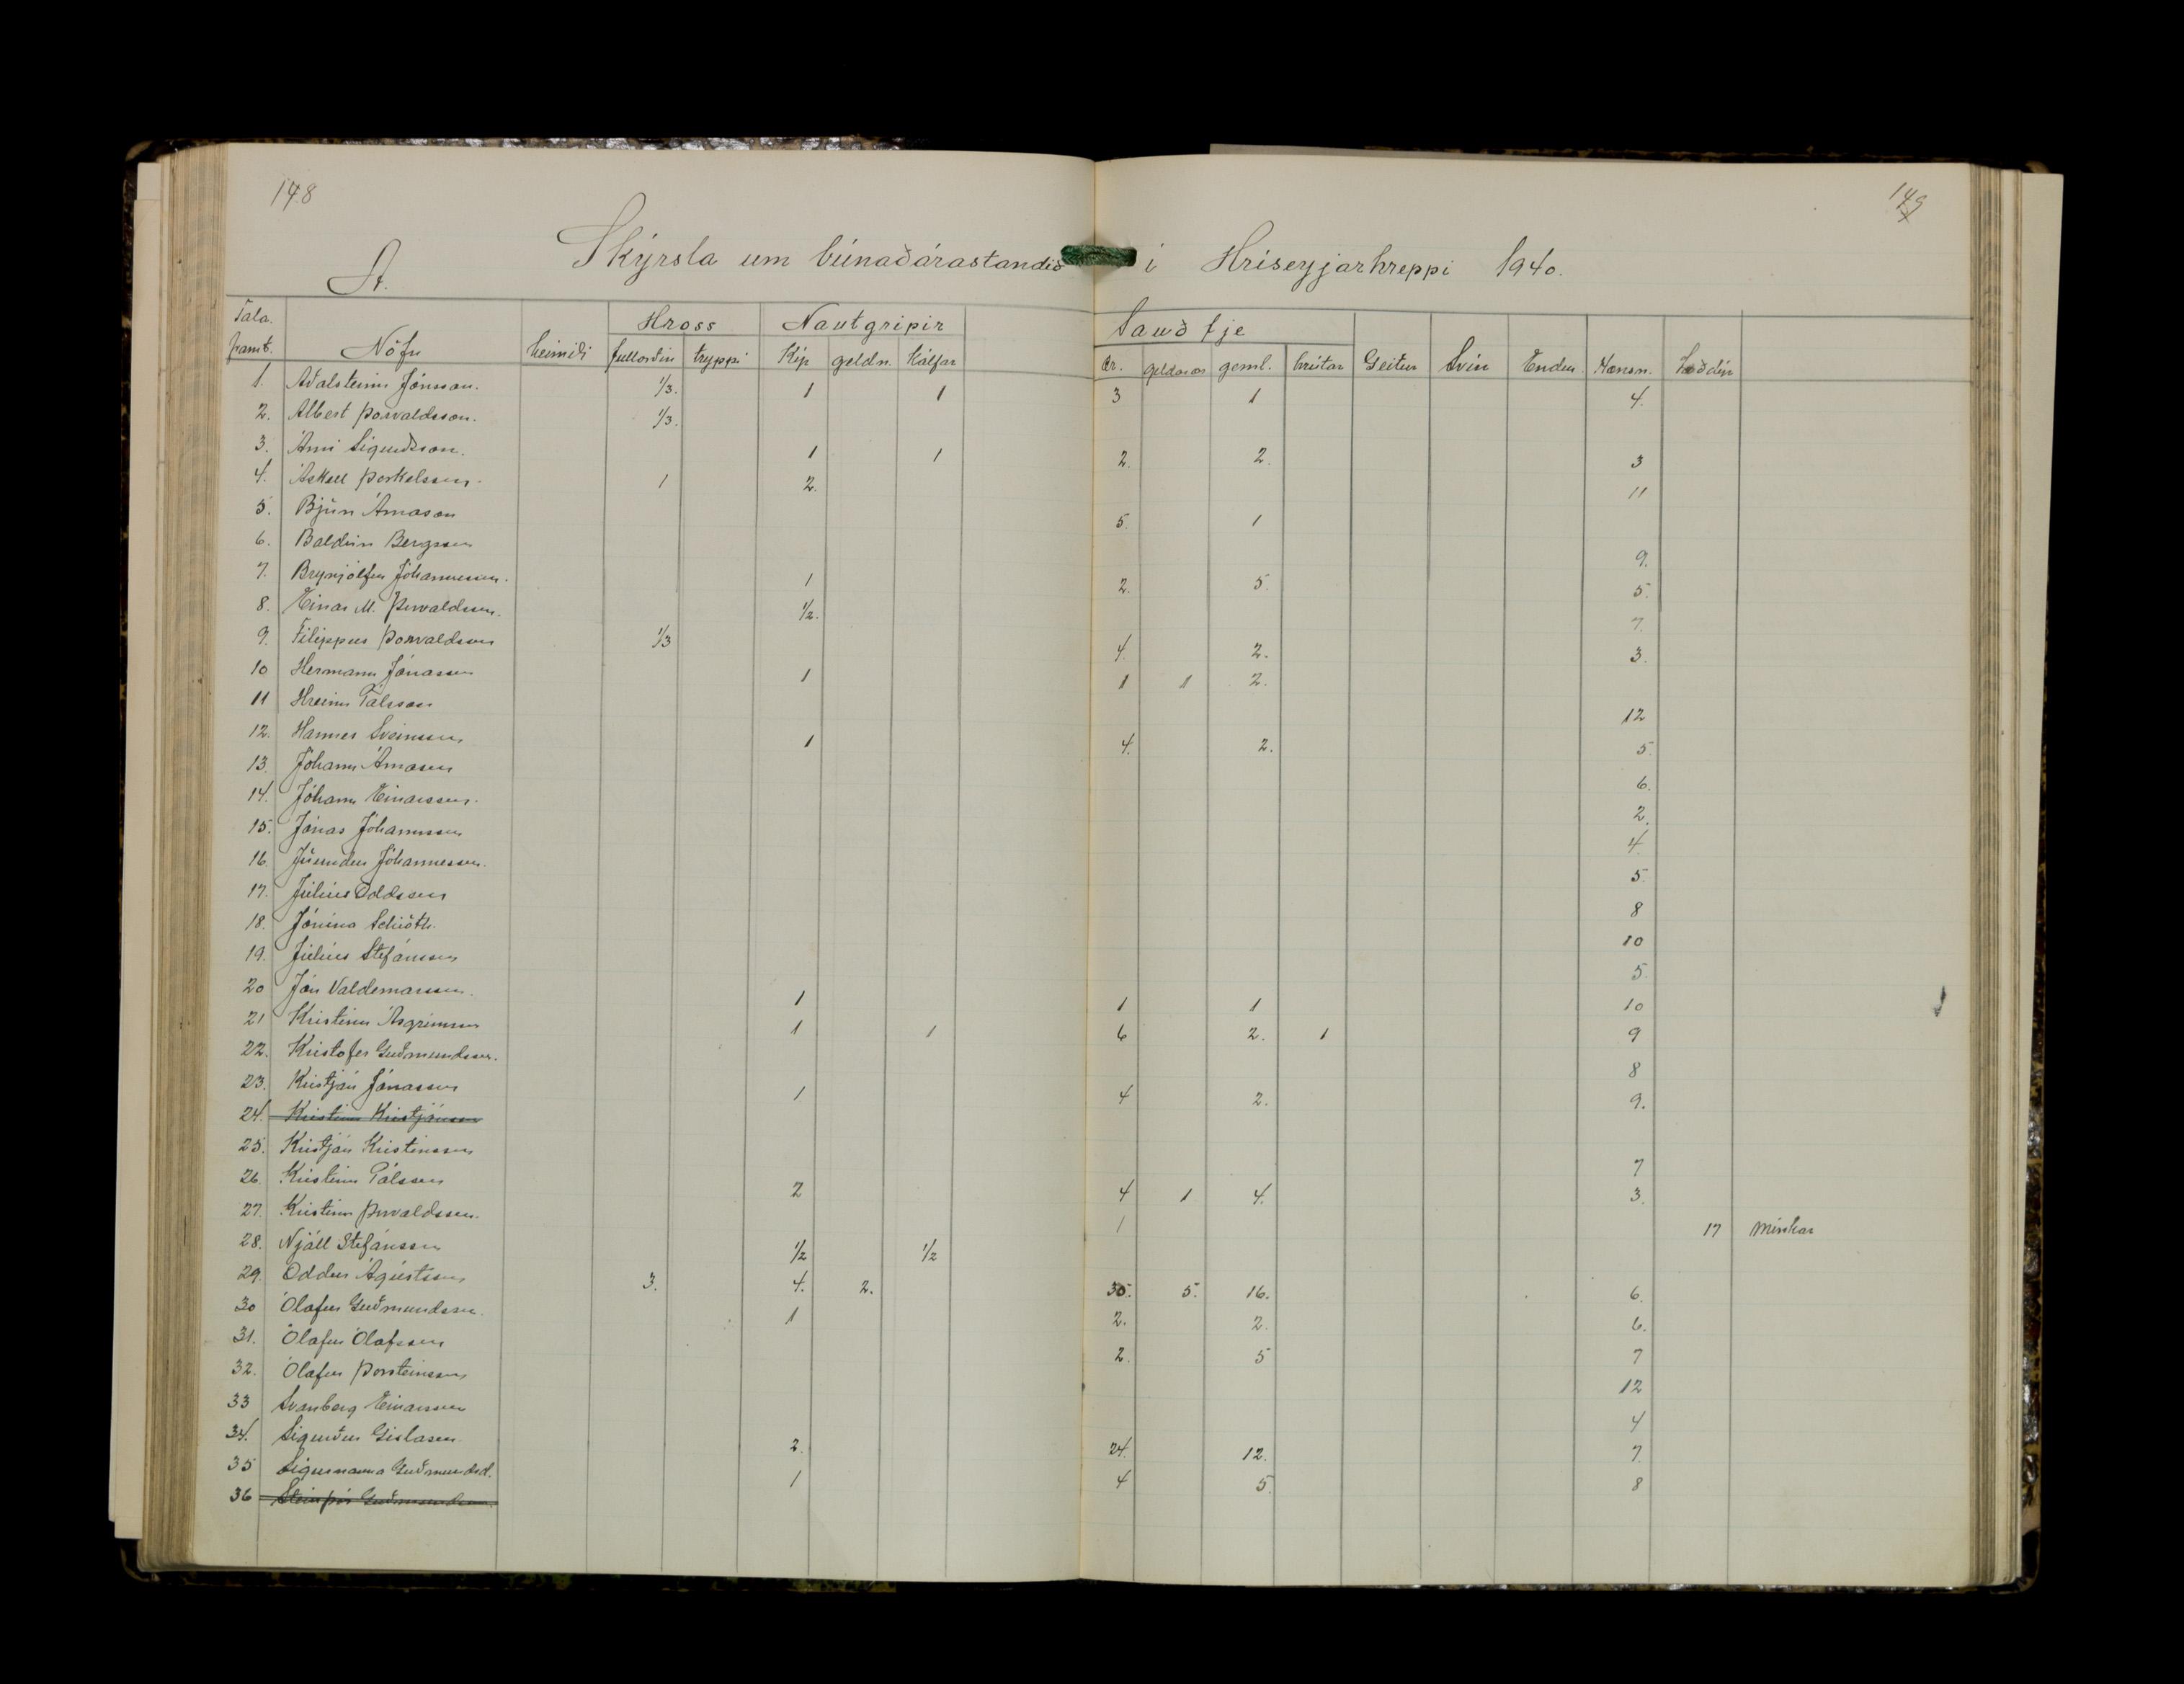 148
149
A. Skýrsla um búnaðárastandið í Hríseyjarhreppi 1940.
Tala framt. Nöfn heimili Hross Nautgripir Sauðfje
fullorðin tryppi Kýr geldn. Kálfar Ær. geldar ær geml. hrútar Geitur Svín Endur Hænsn. Loðdýr
1. Aðalsteinn Jónsson. 1/3. 1 1 3 1 4.
2. Albert Þorvaldsson. 1/3.
3. Árni Sigurðsson. 1 1 2. 2. 3
4. Áskell Þorkelsson. 1 2. 11
5. Björn Árnason 5. 1
6. Baldvin Bergsson 9.
7. Brynjólfur Jóhannesson. 1 2. 5. 5.
8. Einar M. Þorvaldsson. 1/2. 7.
9. Filippus Þorvaldsson 1/3 4. 2. 3.
10 Hermann Jónasson 1 1 1 2.
11 Hreinn Pálsson 12
12. Hannes Sveinsson 1 4. 2. 5.
13. Jóhann Árnason 6.
14. Jóhann Einarsson. 2.
15. Jónas Jóhannsson 4.
16. Jörundur Jóhannesson. 5.
17. Júlíus Oddsson 8
18. Jónína Schiöth. 10
19. Júlíus Stefánsson 5.
20 Jón Valdemarsson. 1 1 1 10
21 Kristinn Ásgrímsson 1 1 6 2. 1 9
22. Kristofer Guðmundsson. 8
23. Kristján Jónasson 1 4 2. 9.
24. Kristinn Kristjánsson
25. Kristján Kristinsson 7
26. Kristinn Pálsson 2 4 1 4. 3.
27. Kristinn Þorvaldsson. 1 17 Minkar
28. Njáll Stefánsson 1/2 1/2
29. Oddur Ágústsson 3. 4. 2. 5. 16. 6.
30 Ólafur Guðmundsson. 1 2. 2. 6.
31. Ólafur Ólafsson 2. 5 7
32. Ólafur Þorsteinsson 12
33 Svanberg Einarsson 4
34. Sigurður Gíslason 2. 24. 12. 7.
35 Sigurnanna Guðmundsd. 1 4 5. 8
36 Steinþór Guðmundsson